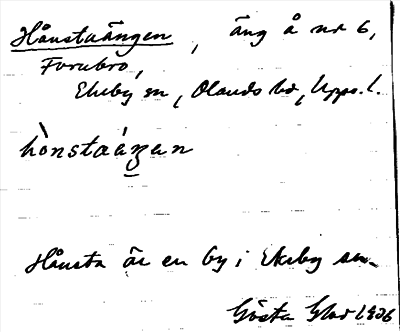 Hånstaängen, äng å nr 6,
Forubro,
Ekeby sn, Olands hd, Upps. l.
hònstaáŋan
Hånsta är en by i Ekeby sn.
Gösta 1926